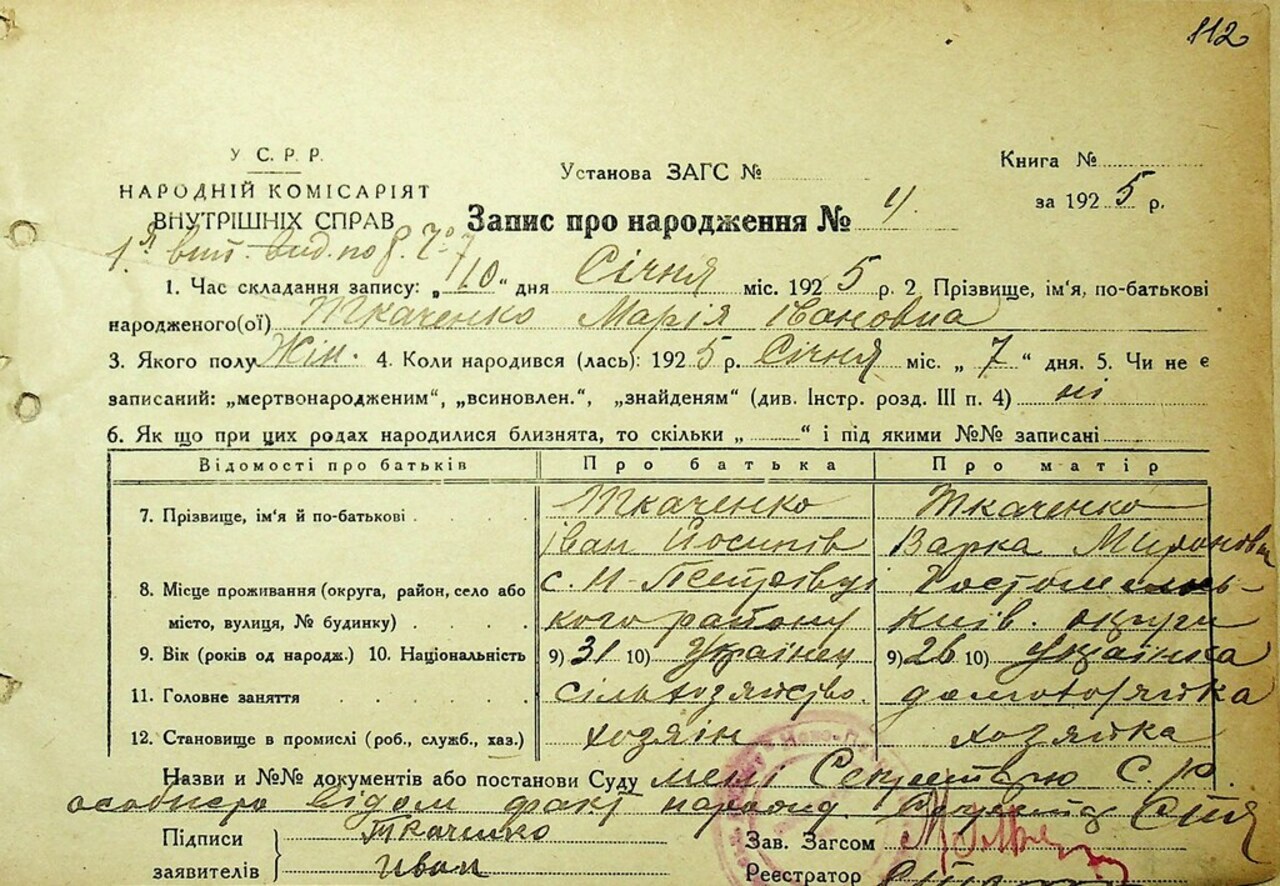 112
У С. Р. Р.
НАРОДНІЙ КОМІСАРІЯТ
ВНУТРІШНІХ СПРАВ
Установа ЗАГС №
Книга №
за 1925 р.
Запис про народження № 4.
1.я вид. по
1. Час складання запису: „10“ дня Січня міс. 1925 р. 2 Прізвище, ім'я, по-батькові
народженого(ої) Ткаченко Марія Івановна
3. Якого полу Жін. 4. Коли народився (лась): 1925 р. Січня міс. „7“ дня. 5. Чи не є
записаний: „мертвонародженим“, „всиновлен.“, „знайденям“ (див. Інстр. розд. III п. 4) ні
6. Як що при цих родах народилися близнята, то скільки „ “ і під якими №№ записані
Відомості про батьків Про батька Про матір
7. Прізвище, ім'я й по-батькові Ткаченко Ткаченко
Іван Йосипів Варка Мироновна
8. Місце проживання (округа, район, село або с. Н-Петрівці Гостомель-
місто, вулиця, № будинку) кого району Київ. округи
9. Вік (років од народж.) 10. Національність 9) 31 10) Українец 9) 26 10) Українка
11. Головне заняття сільхозяйство. домохозяйка
12. Становище в промислі (роб., служб., хаз.) хозяін хозяйка
Назви и №№ документів або постанови Суду мені Секретарю С. Р.
особисто відом факт народж.
Підписи Ткаченко
заявителів Иван
Зав. Загсом
Реєстратор